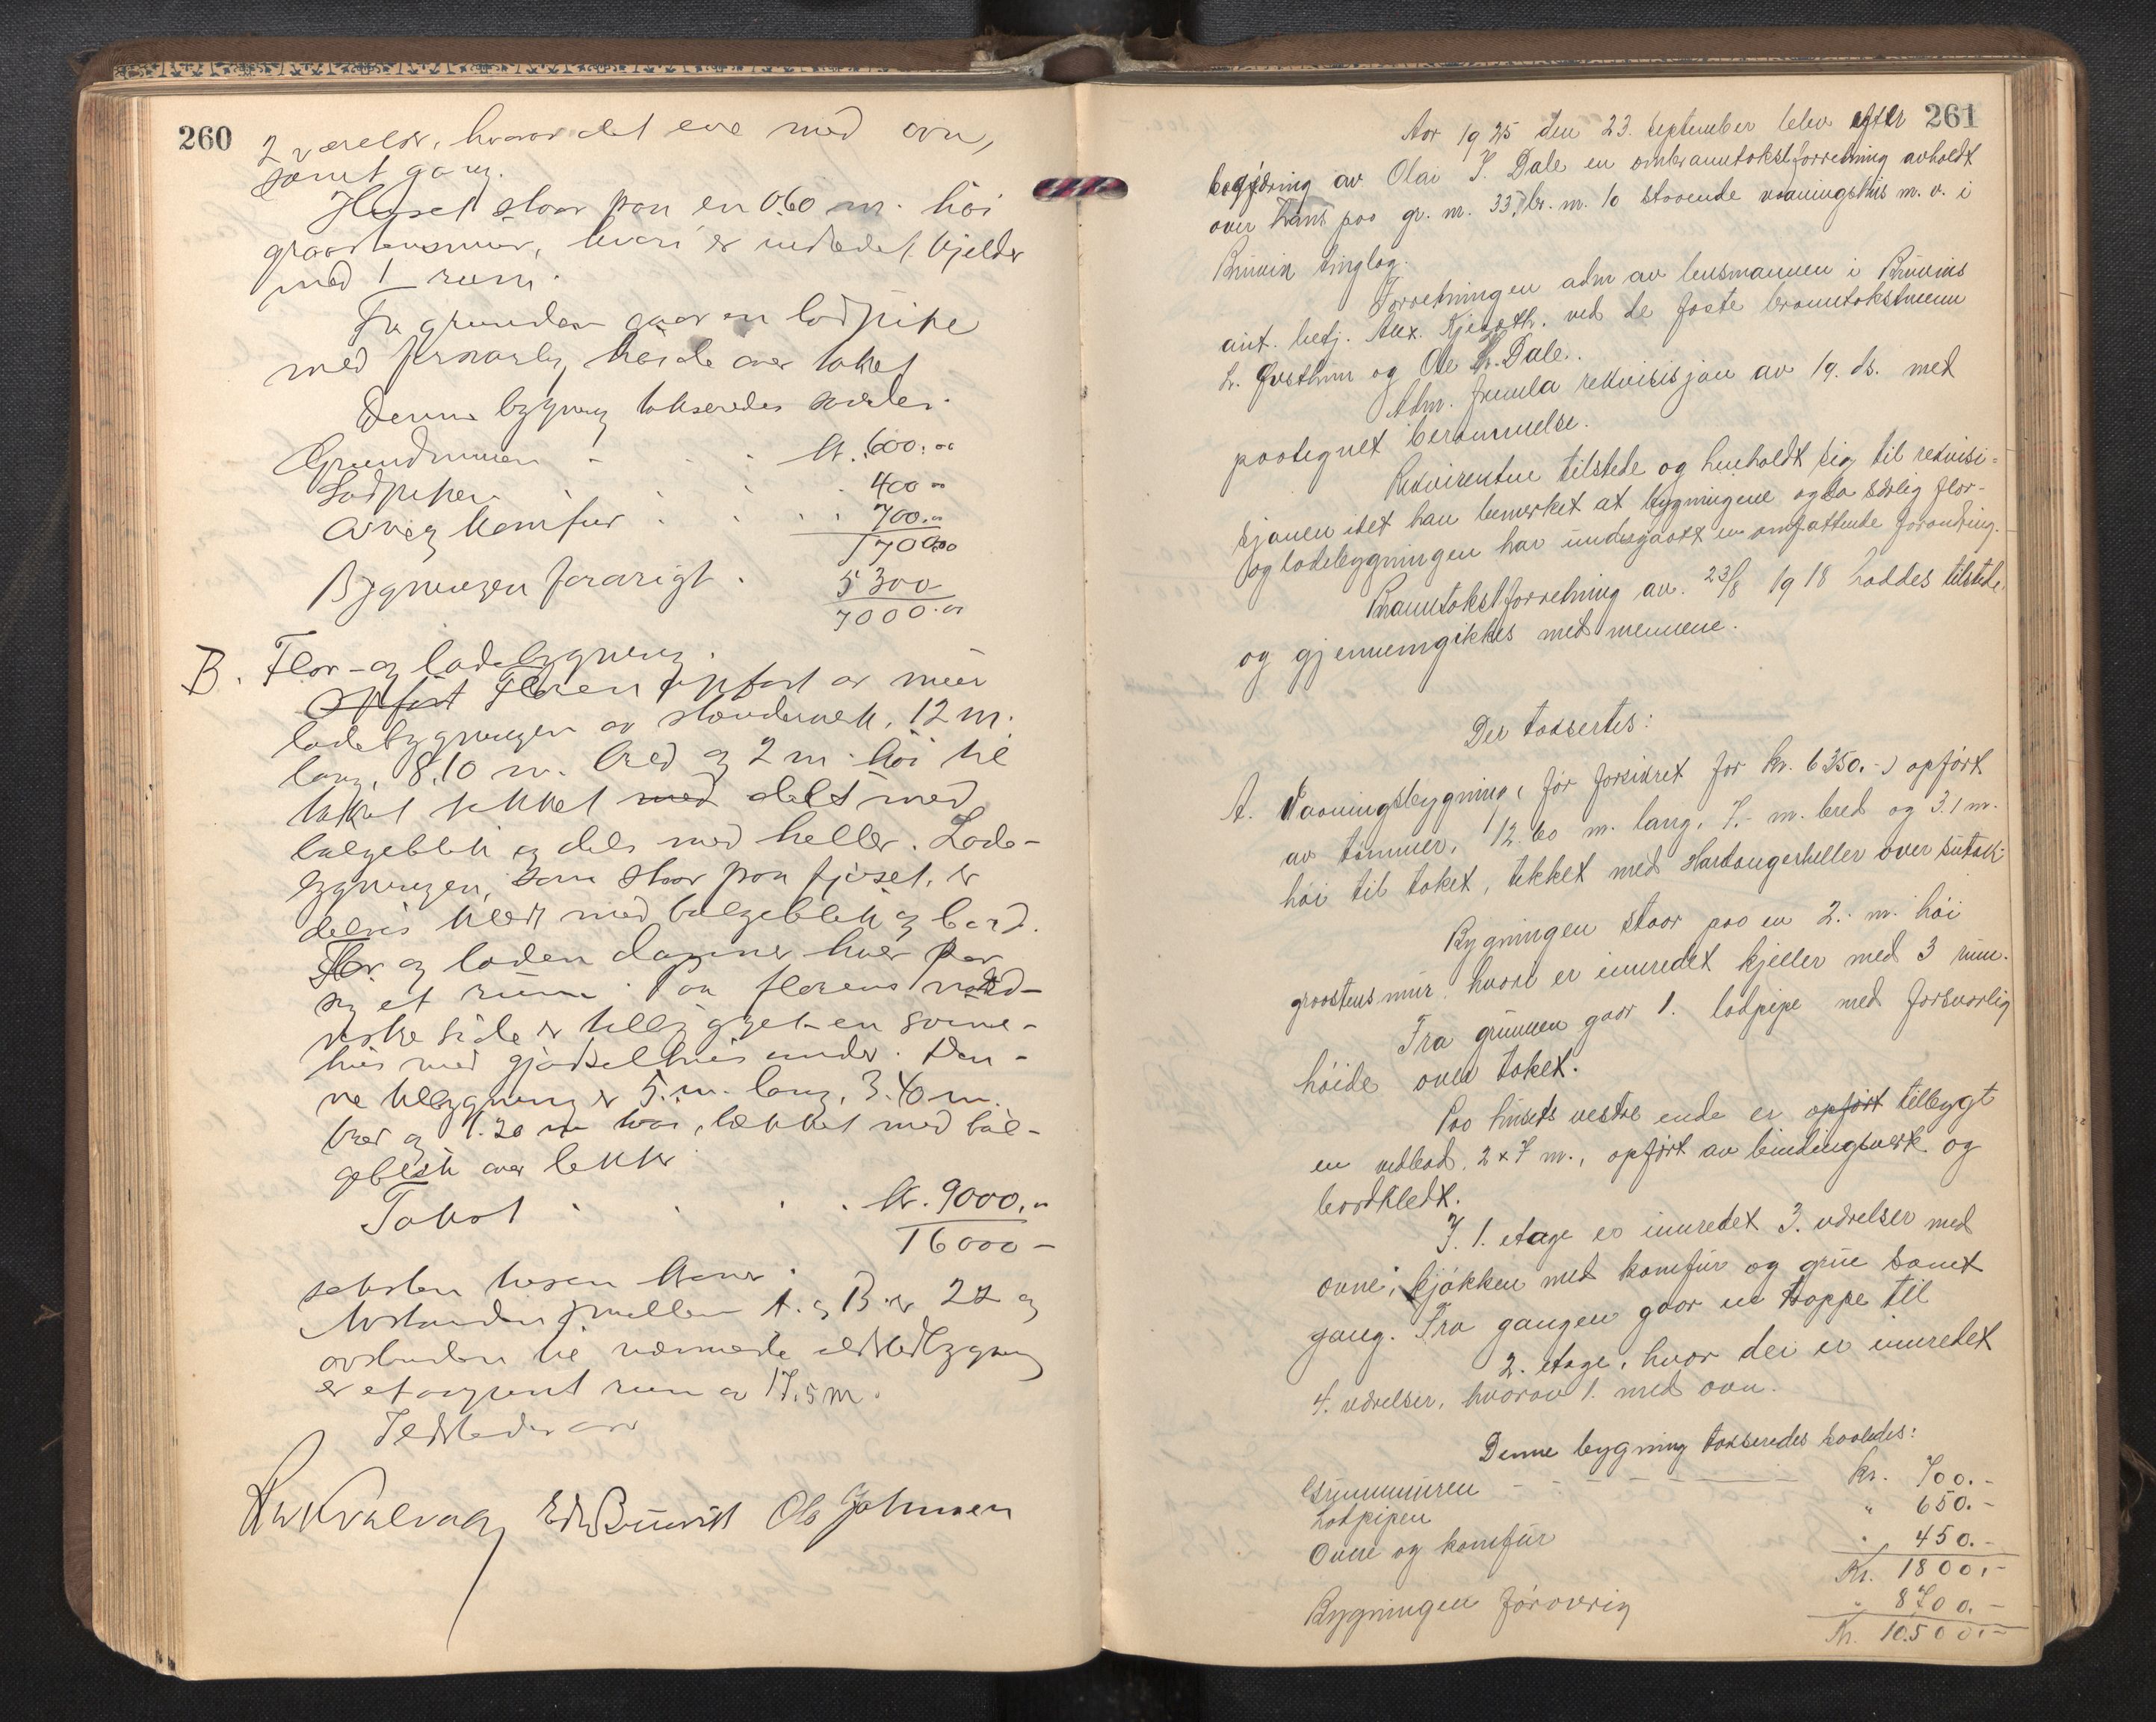 260
2 værelser, hvorav det ene med ovn,
samt gang.
Huset staar paa en 0.60 m. høi
graastensmur, hvori er indredet kjelder
med 1 rum.
Fra grunden gaar en lodpipe
med forsvarlig høide over taket
Denne bygning takseredes saaledes.
Grundmuren . . . kr. 600.00
Lodpipen . . . 400 00
Ovn og komfur . . . 700.00
1700.00
Bygningen forøvrigt . 5300
7000.00
B. Flor- og ladebygning.
Opført Floren opført av mur
ladebygningen av stenderverk. 12 m.
lang, 8.10 m. bred og 2 m. høi til
taket tekket med dels med
bølgeblik og dels med heller. Lade-
bygningen, som staar paa fjøset, er
delvis klædt med bølgeblik og bord.
Flor og laden danner hver for
sig et rum. Paa florens nord-
vestre side er tilbygget en svine-
hus med gjødselhus under. Den-
ne tilbygning er 5. m. lang, 3.40 m.
bred og 1.20 m høi, tækket med bøl-
geblik over lekter
Takst . . . kr. 9000.00
16000 -
seksten tusen kroner.
Avstanden mellem A. og B. er 22 og
avstanden til nærmeste ildstedbygning
er et aapent rum av 17.5 m.
Ildsteder
Kvalvaag Edv Bruvik Ole Johnsen
261
Aar 1925 den 23. september blev efter
begjæring av Olai I. Dale en ombranntakstforretning avholdt
over hans paa gr. nr. 33, br. nr. 10 staaende vaaningshus m. v. i
Bruvik tinglag.
Forretningen adm av lensmannen i Bruviks
aut. betj. Alex. Kjeseth. ved de faste branntakstmenn
L. Øvsthun og Ole K. Dale.
Adm. fremla rekvisisjon av 19. ds. med
paategnet berammelse.
Rekvirenten tilstede og henholdt sig til rekvisi-
sjonen idet han bemerket at bygningene ogsa særlig flor-
og ladebygningen har undergaatt en omfattende forandring.
Branntakstforretning av. 23/8 1918 haddes tilstede
og gjennemgikkes med mennene.
Der taksertes:
A. Vaaningsbygning, (før forsikret for kr. 6350.-) opført
av tømmer, 12.60 m. lang, 7.- m. bred og 3.1 m.
høi til taket, tekket med Hardangerheller over sutak.
Bygningen staar paa en 2. m. høi
graastensmur hvori er innredet kjeller med 3 rum.
Fra grunnen gaar 1. lodpipe med forsvarlig
høide over taket.
Paa husets vestre ende er opført tilbygt
en vedbod. 2 x 7 m., opført av bindingsverk og
bordkledt.
I. 1. etage er innredet 3. værelser med
ovne, kjøkken med komfur og grue samt
gang. Fra gangen gaar en trappe til
2. etage, hvor der er innredet
4. værelser, hvorav 1. med ovn.
Denne bygning takseredes saaledes:
Grunnmuren - - - - - kr. 700.-
Lodpipen " 650.-
Ovne og komfur " 450.-
Kr. 1800.-
Bygningen forøvrig " 8700.-
Kr. 10500.-